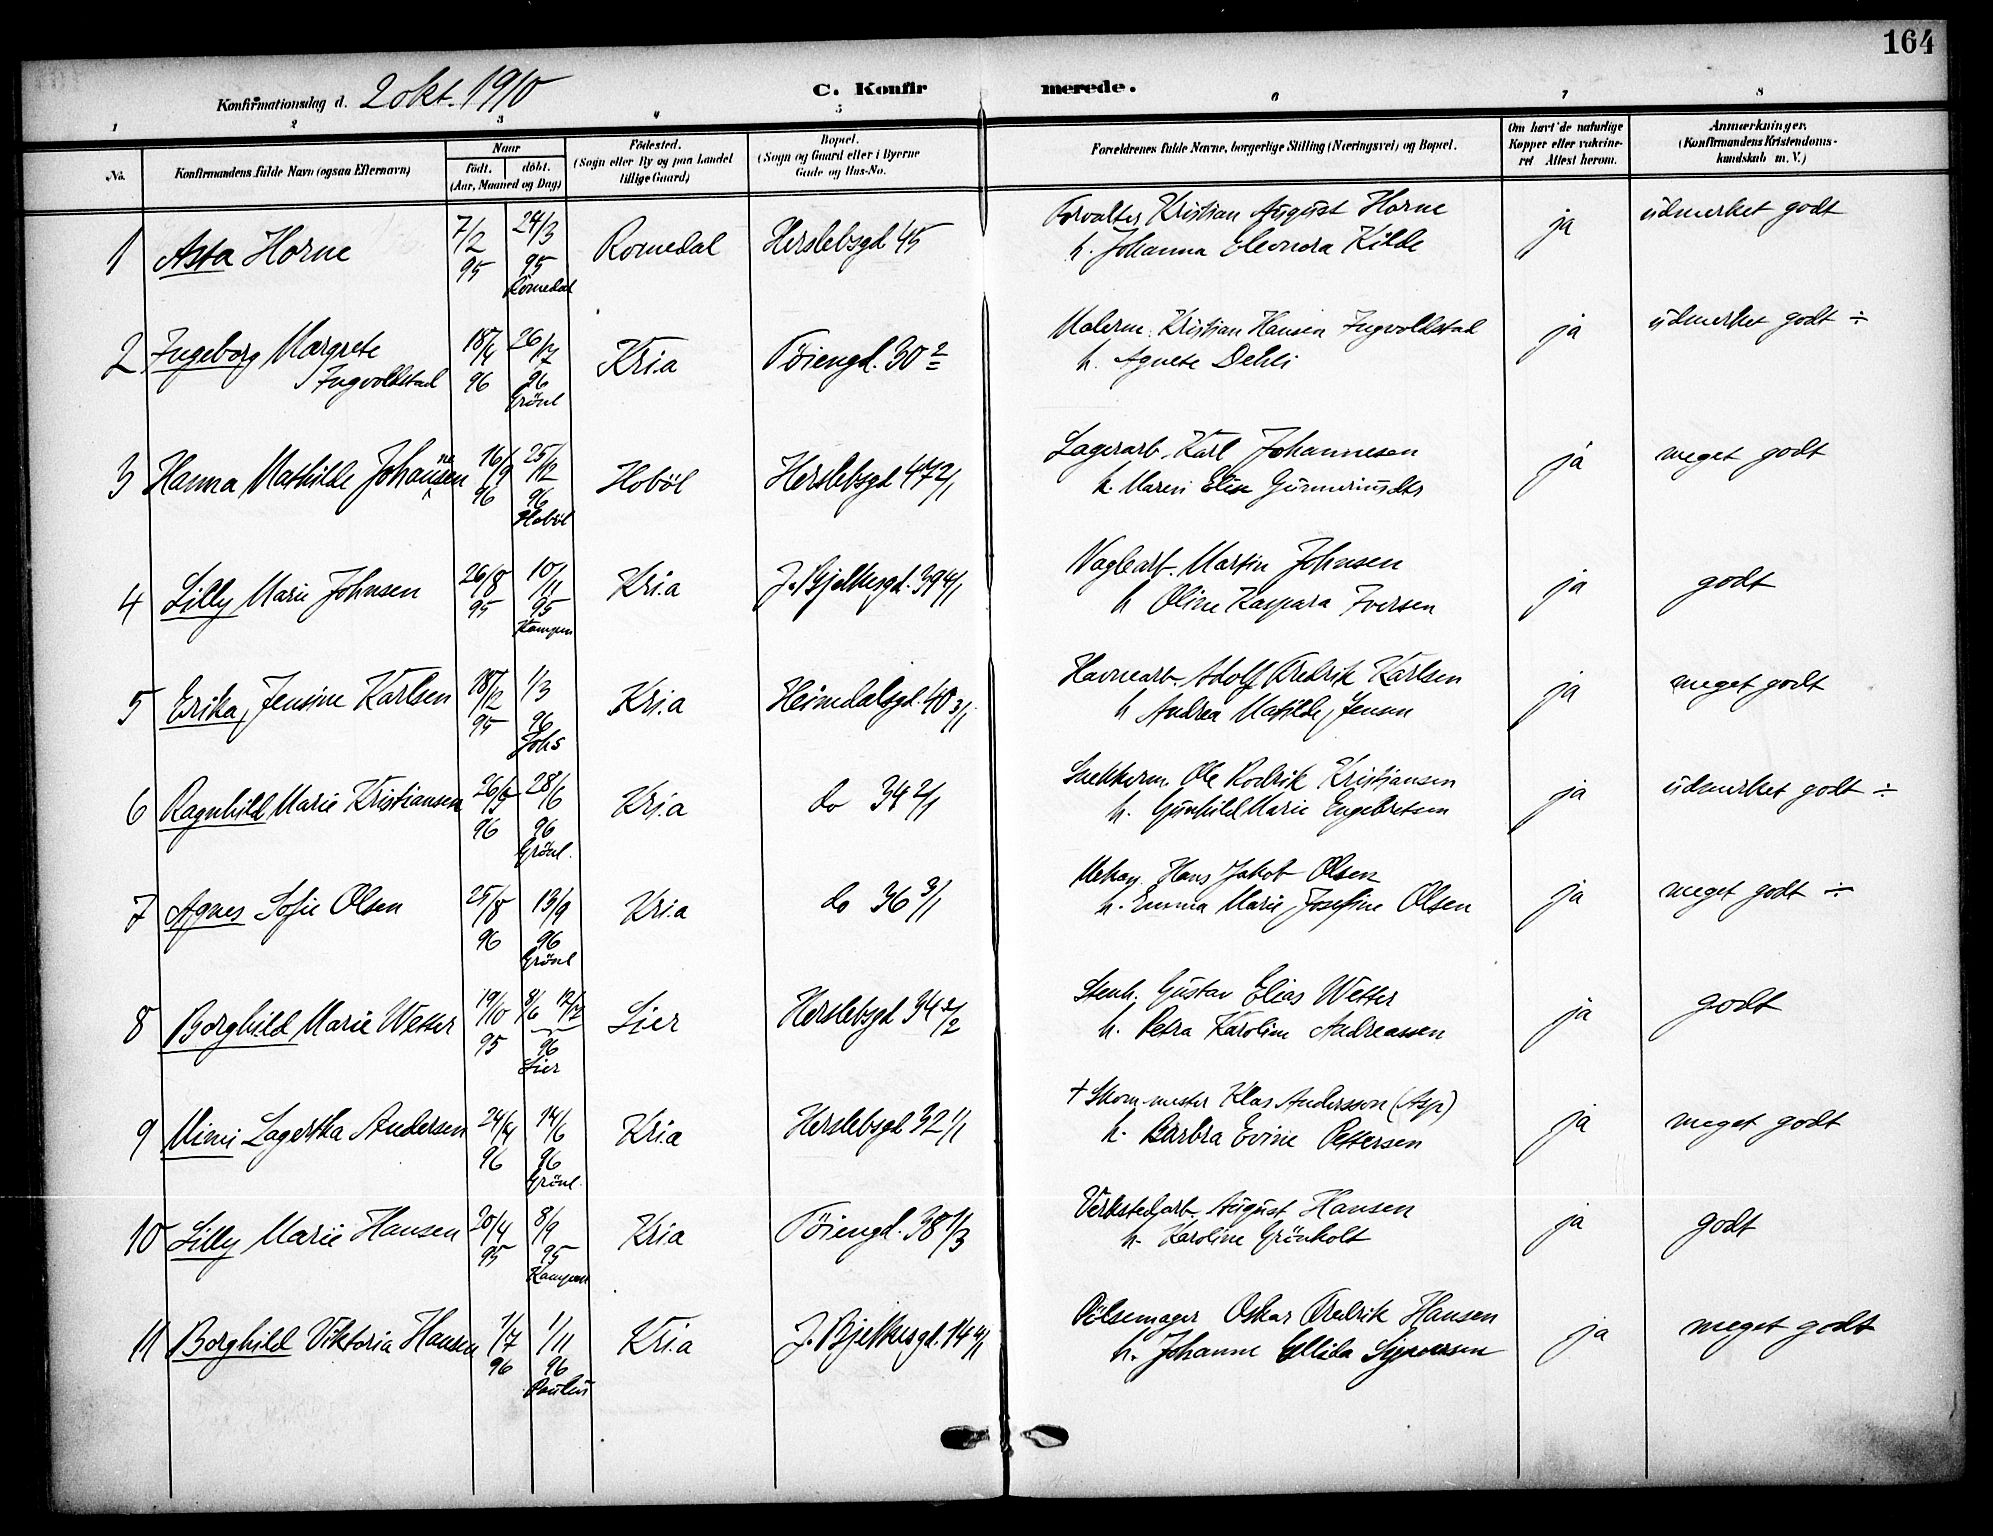 164
Konfirmationsdag d. 2 okt. 1910
C. Konfirmerede.
1 2 3 4 5 6 7 8
No.
Konfirmandens fulde Navn (ogsaa Efternavn)
Naar
født. døbt.
(Aar, Maaned og Dag)
Fødested.
(Sogn eller By og paa Landet
tillige Gaard)
Bopæl.
(Sogn og Gaard eller i Byerne
Gade og Hus-No.
Forældrenes fulde Navne, borgerlige Stilling (Næringsvei) og Bopæl.
Om havt de naturlige
Kopper eller vakcine-
ret Attest herom.
Anmærkninger.
(Konfirmandens Kristendoms-
kundskab m. V.)
1 Asta Horne 7/2 95 24/3 95 Romedal Romedal Herslebsgd 45
Forvalter Kristian August Horne
h. Johanna Eleonora Kilde
ja udmerket godt
2 Ingeborg Margrete
Ingvoldstad 18/4 96 26/7 96 Grönl Kria Töiengd. 30 2
Malerm. Kristian Hansen Ingvoldstad
h. Agnete Dehli
ja udmerket godt ÷
3 Hanna Mathilde Johannesen 16/9 96 25/12 96 Hoböl Hoböl Herslebsgd 47 2/1
Lagerarb. Karl Johannesen
h. Maren Elise Gunneriusdtr
ja meget godt
4 Lilly Marie Johnsen 26/8 95 10/11 95 Kampen Kria J. Bjelkesgd. 39 4/1
Naglearb. Martin Johnsen
h Oline Kaspara Iversen
ja godt
5 Erika Jensine Karlsen 18/12 95 1/3 96 Johs Kria Heimdalsgd. 40 3/1
Havnearb. Adolf Fredrik Karlsen
h Andrea Matilde Jensen
ja meget godt
6 Ragnhild Marie Kristiansen 26/3 96 28/6 96 Grönl. Kria do 34 2/1
Snekkerm. Ole Rodrik Kristiansen
h. Gunhild Marie Engebretsen
ja udmerket godt ÷
7 Agnes Sofie Olsen 25/8 96 13/9 96 Grönl Kria do 36 3/1
Mekan. Hans Jakob Olsen
h. Emma Marie Josefine Olsen
ja meget godt ÷
8 Borghild Marie Wetter 19/10 95 8/6 12/12 96 Lier Lier Herslebsgd 34 2/2
Stenh. Gustav Elias Wetter
h. Petra Karoline Andreassen
ja godt
9 Mimi Lagertha Andersen 24/4 96 14/6 96 Grönl. Kria Herslebsgd 32 1/1
† Skom. mester Klas Andersson (Asp)
h. Barbra Evine Pettersen
ja meget godt
10 Lilly Marie Hansen 20/4 95 8/9 95 Kampen Kria Töiengd. 38 1/3
Verkstedarb. August Hansen
h. Karoline Grönholt
ja godt
11 Borghild Viktoria Hansen 1/7 96 1/11 96 Paulus Kria J. Bjelkesgd. 14 4/1
Pölsemager Oskar Fredrik Hansen
h. Johanne Ellida Syversen
ja meget godt